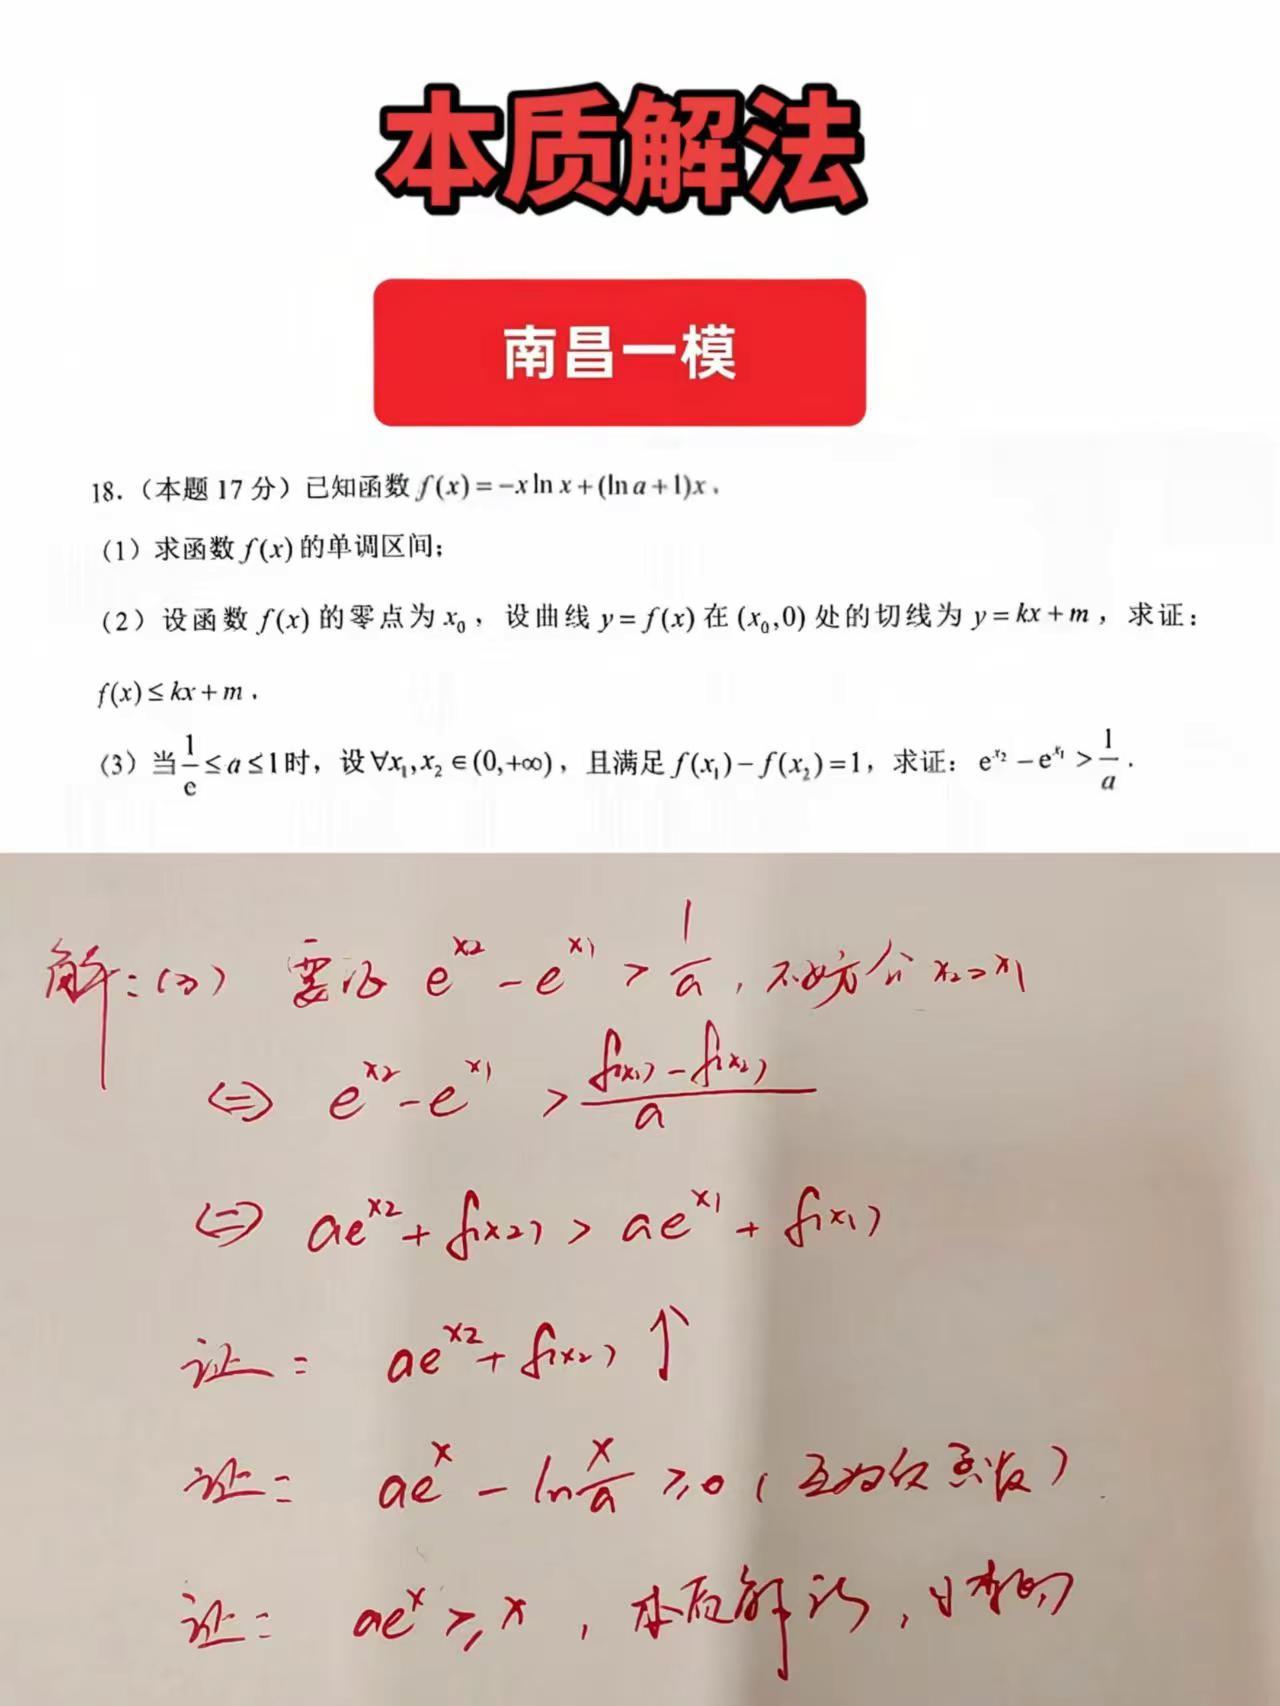 本质解法
南昌一模
18.（本题 17 分）已知函数 f(x)=-x ln x+(ln a+1)x.
（1）求函数 f(x) 的单调区间;
（2）设函数 f(x) 的零点为 x₀，设曲线 y=f(x) 在 (x₀,0) 处的切线为 y=kx+m，求证:
f(x)≤kx+m.
（3）当 1/e ≤a≤1时，设∀x₁,x₂∈(0,+∞)，且满足 f(x₁)-f(x₂)=1，求证: e^{x₂}-e^{x₁}>1/a.
解:(3) 要证 e^{x₂}-e^{x₁}>1/a, 不妨令 x₂>x₁
⇔ e^{x₂}-e^{x₁} > (f(x₁)-f(x₂))/a
⇔ ae^{x₂}+f(x₂)>ae^{x₁}+f(x₁)
证: ae^{x₂}+f(x₂)↑
证: ae^x - ln x/a ≥0 (互为反函数)
证: ae^x≥x, 本质解法,